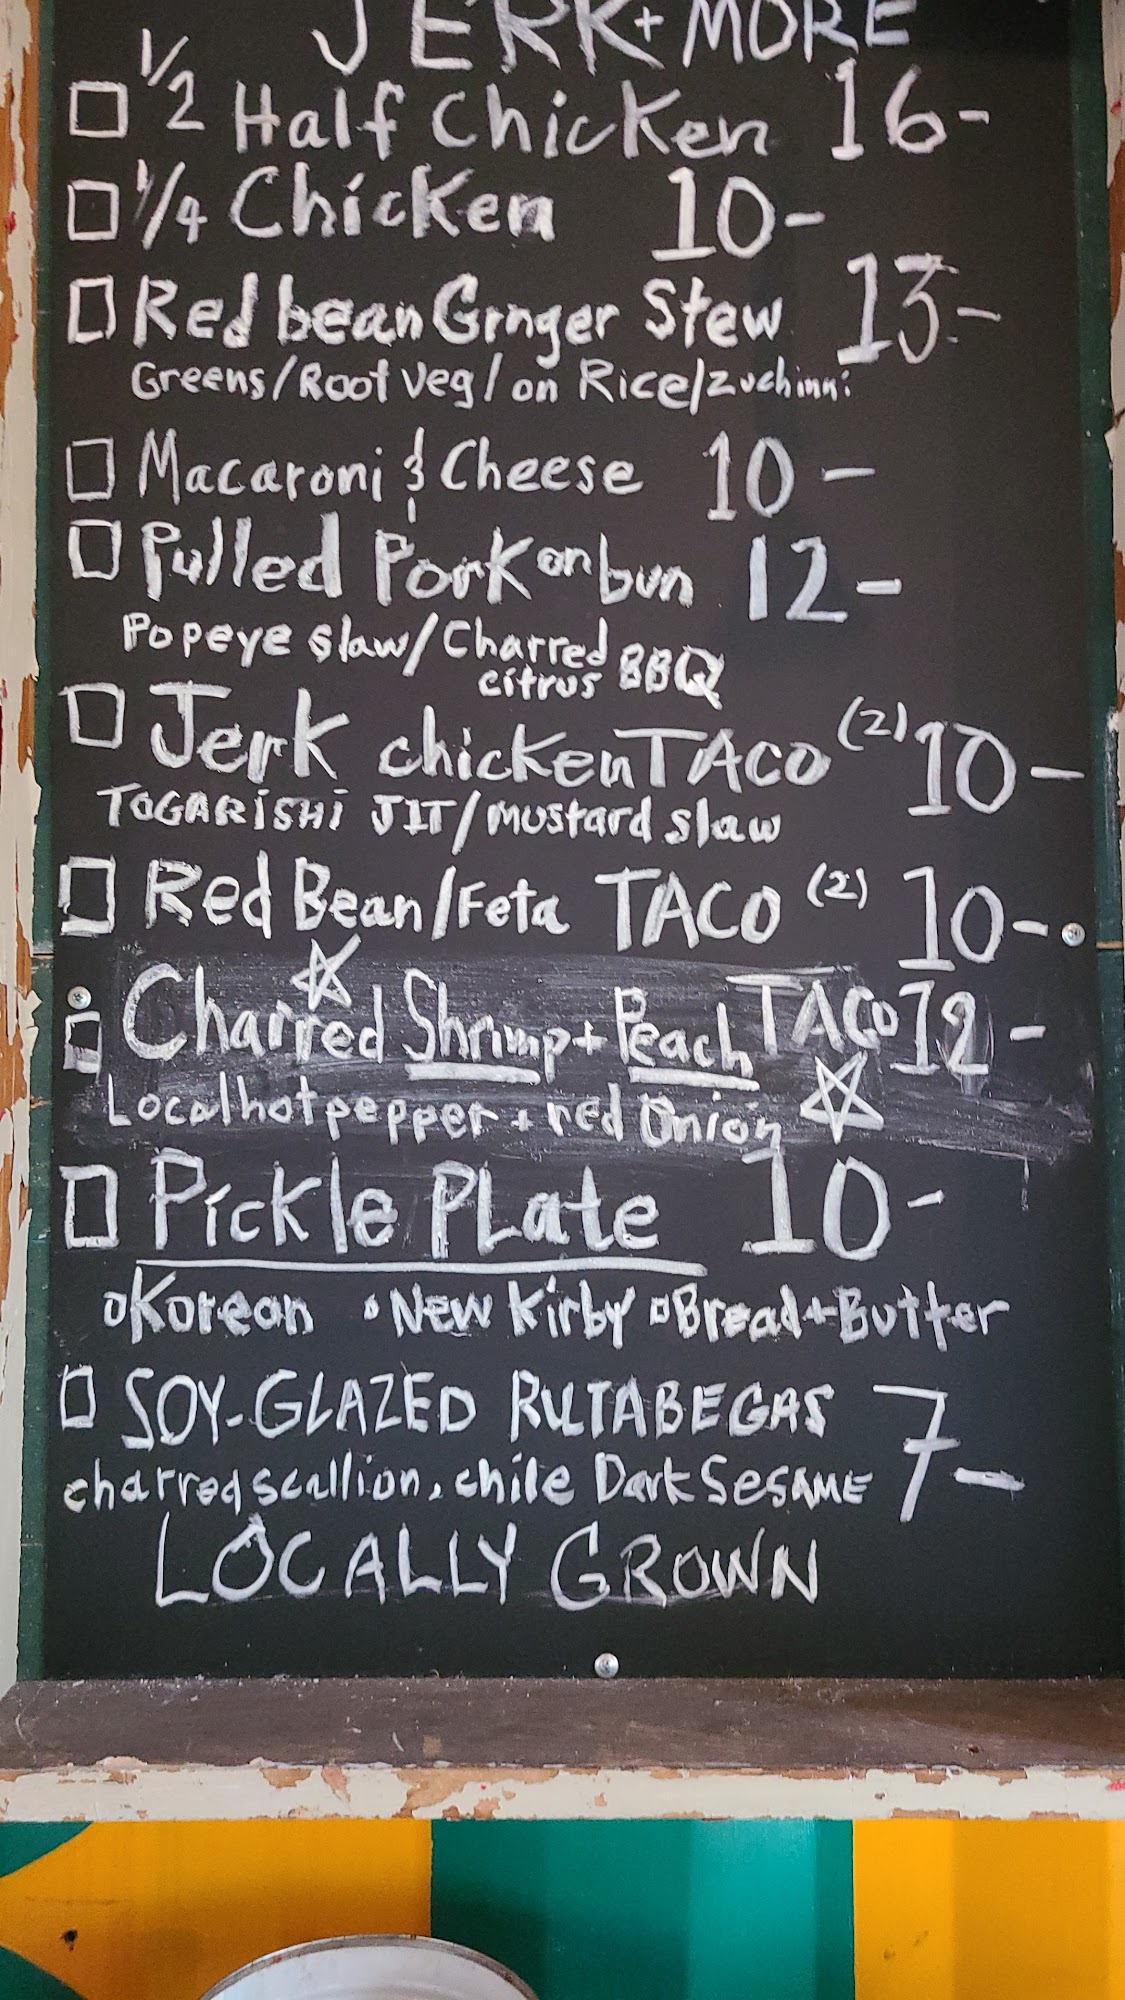 JERK + MORE
1/2 Half Chicken 16-
1/4 Chicken 10-
Red bean Ginger Stew 13-
Greens/Root Veg/on Rice/Zuchinni
Macaroni & Cheese 10-
Pulled Pork on bun 12-
Popeye slaw/Charred
citrus BBQ
Jerk chicken TACO (2) 10-
TOGARISHI JIT/mustard slaw
Red Bean/Feta TACO (2) 10-
Charred Shrimp + Peach TACO 12-
Local hot pepper + red Onion
Pickle PLate 10-
Korean New Kirby Bread + Butter
SOY-GLAZED RUTABEGAS 7-
charred scallion, chile Dark SESAME
LOCALLY GROWN